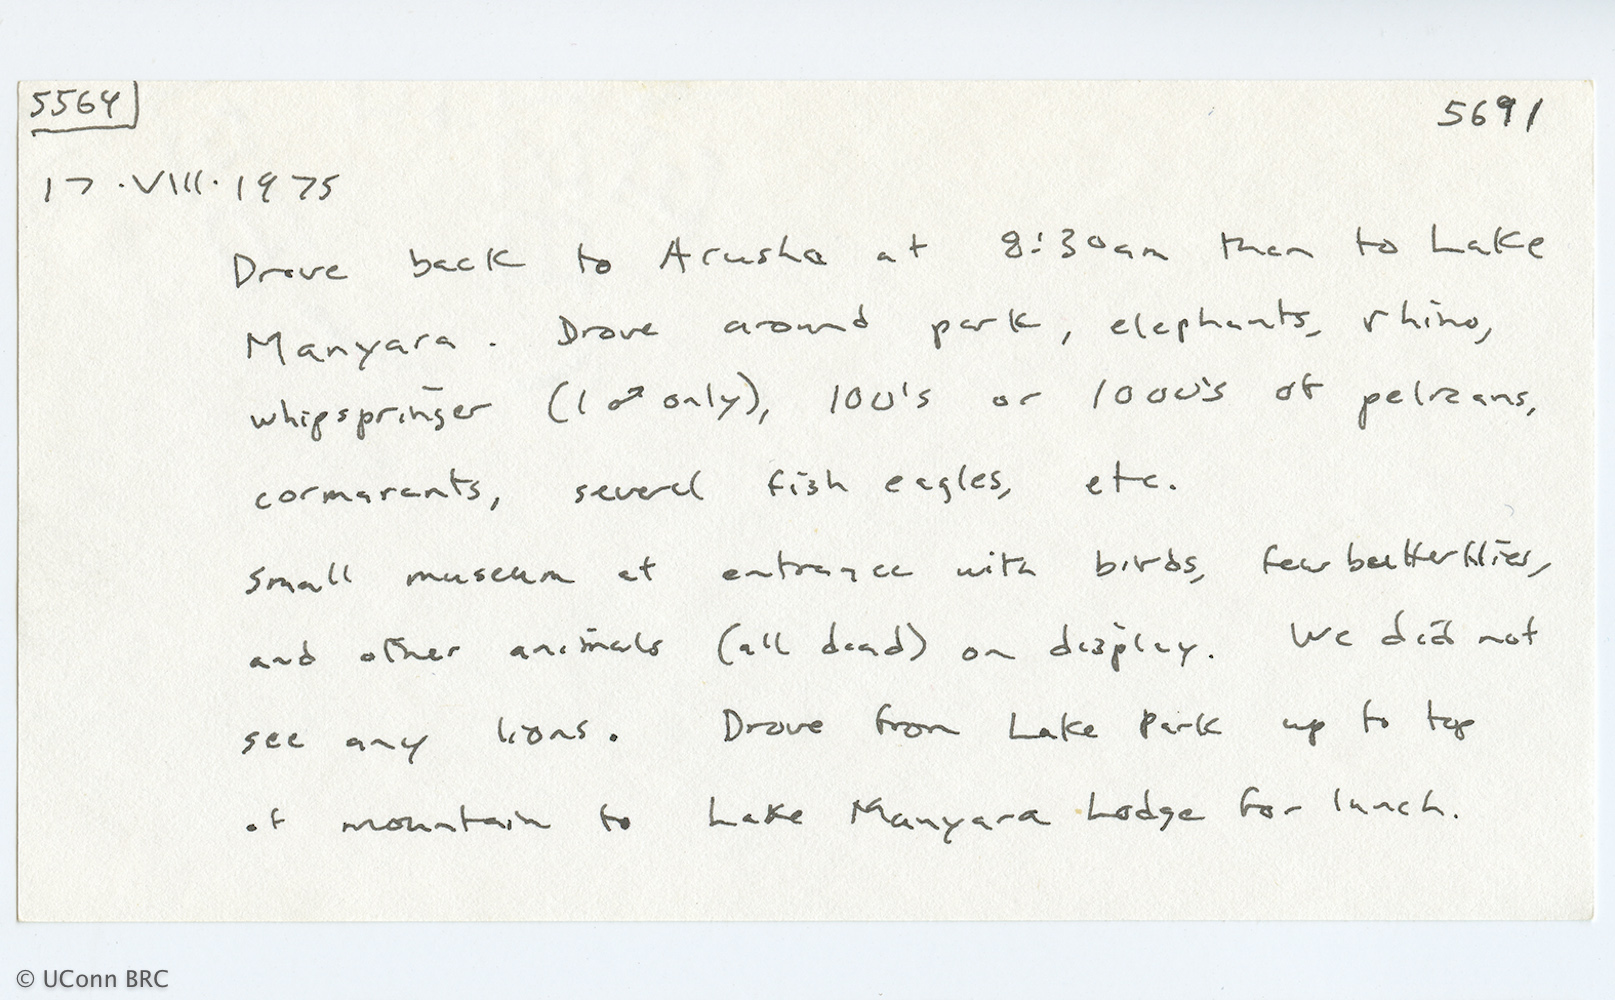 5564 5691
17.VIII.1975
Drove back to Arusha at 8:30am then to Lake
Manyara. Drove around park, elephants, rhino,
whipspringer (1 ♂ only), 100's or 1000's of pelicans,
cormarants, several fish eagles, etc.
Small museum at entrance with birds, few butterflies,
and other animals (all dead) on display. We did not
see any lions. Drove from Lake Park up to top
of mountain to Lake Manyara Lodge for lunch.
© UConn BRC